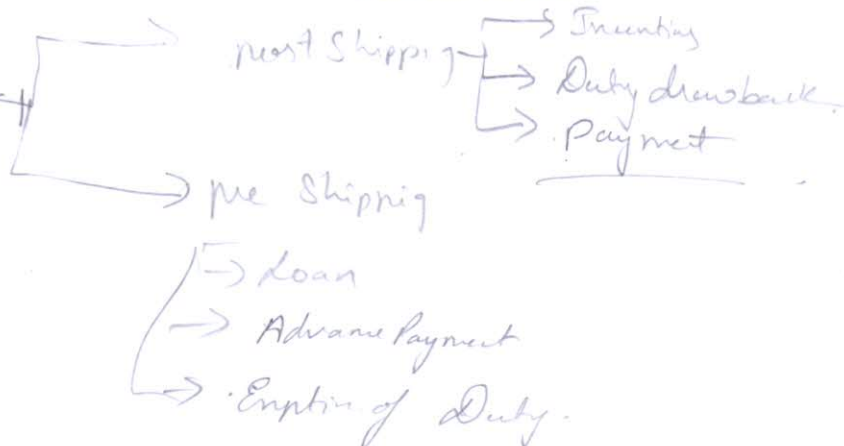 post Shippig
Incentivs
Duty drawback
Payment
pre Shippig
Loan
Advance Payment
of Duty.